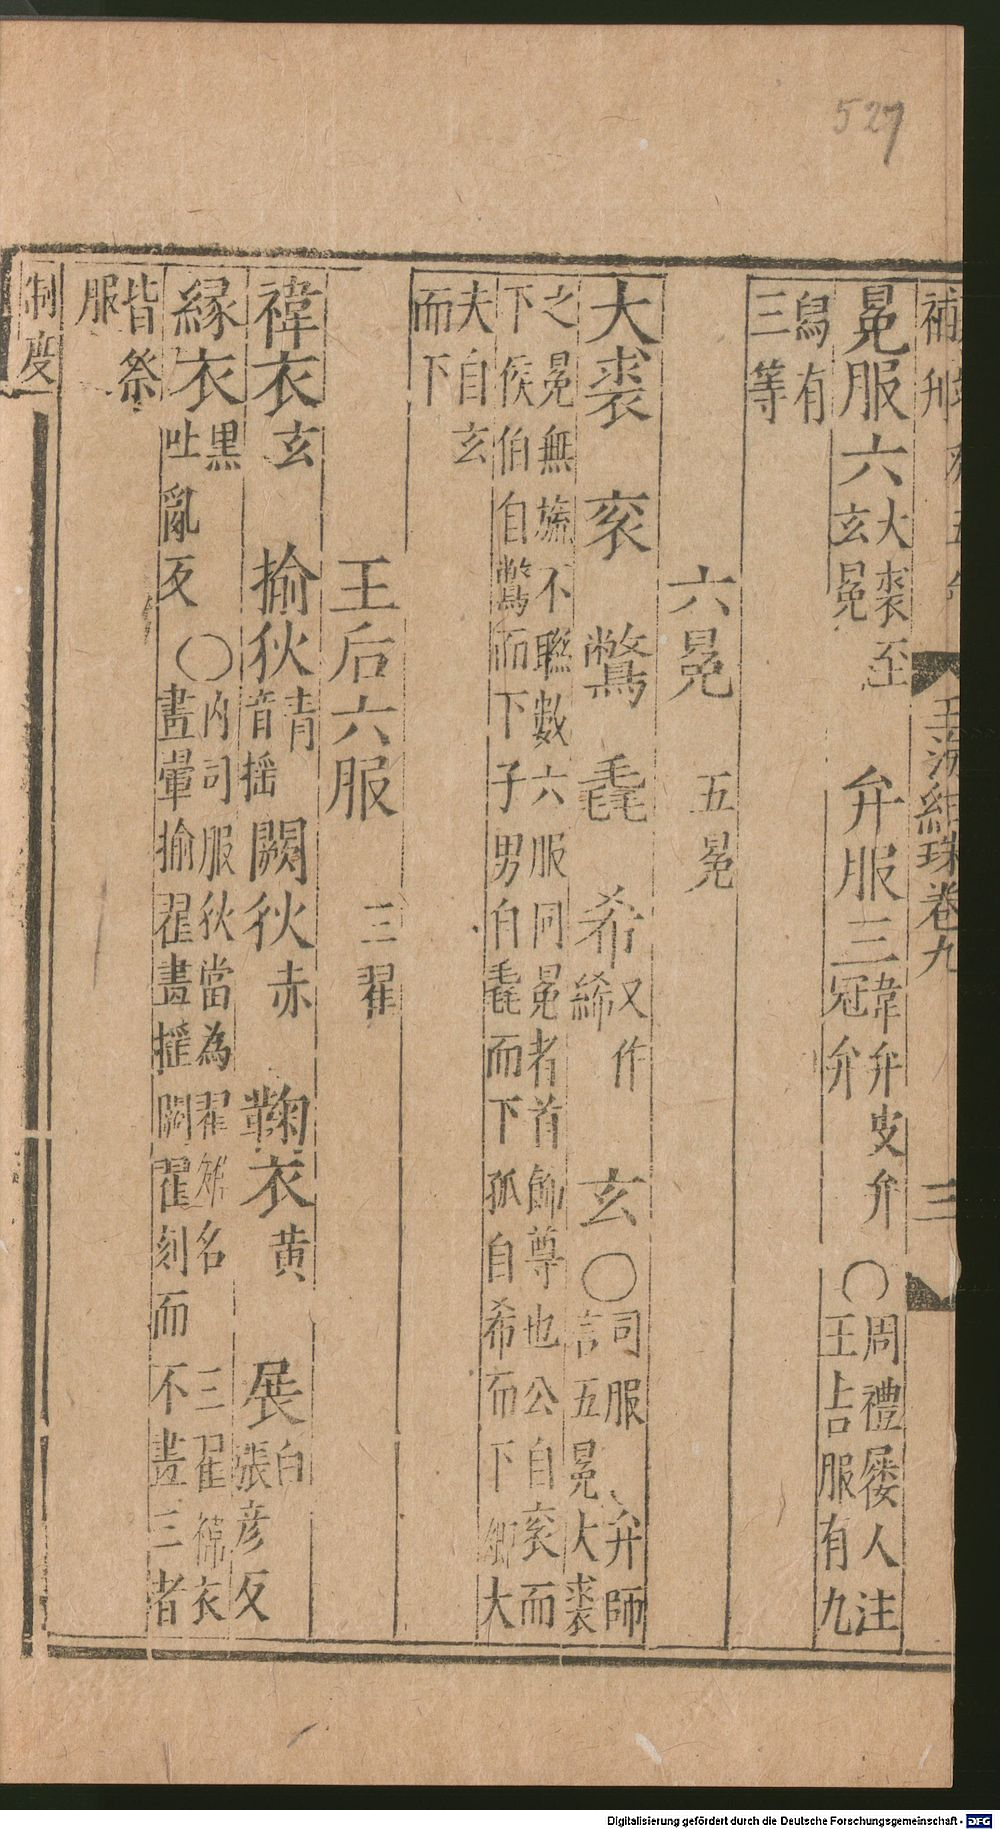 527
補刊
玉海紺珠卷九
三
冕服六
大裘至
玄冕
弁服三
韋弁皮弁
冠弁
○
周禮屨人注
王吉服有九
舄有
三等
六冕
五冕
大裘 衮 鷩 毳 希
又作
絺
玄○
司服弁師
言五冕大裘
之冕無旒不聯數六服同冕者首飾尊也公自衮而
下侯伯自鷩而下子男自毳而下孤自希而下卿大
夫自玄
而下
王后六服
三翟
褘衣
玄
揄狄
青
音揺
闕狄
赤
鞠衣
黄
展
白
張彦反
緣衣
黒
吐亂反
○
内司服狄當為翟雉名
三翟褘衣
畫翬揄翟畫揺闕翟刻而不畫三者
皆祭
服
制度
Digitalisierung gefördert durch die Deutsche Forschungsgemeinschaft - DFG